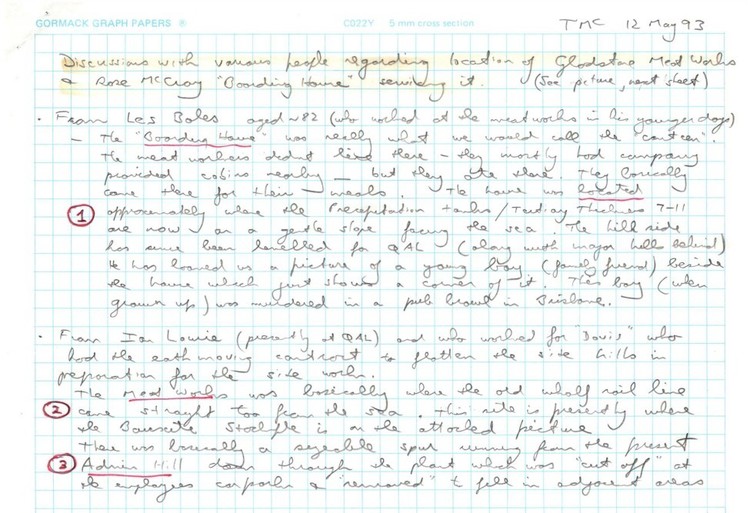 GORMACK GRAPH PAPERS ® C022Y 5 mm cross section TMC 12 May 93
Discussions with various people regarding location of Gladstone Meat Works
& Rose McCray "Boarding House" servicing it. (See picture, next sheet)
· From Les Boles aged ~82 (who worked at the meatworks in his younger days)
– The "Boarding House" was really what we would call the "canteen".
The meat workers didnt live there – they mostly had company
provided cabins nearby – but they ate there. They basically
came there for their meals. The house was located
① approximately where the Precipitation tanks/Tertiary Thickners 7-11
are now on a gentle slope facing the sea. The hill side
has since been levelled for QAL (along with major hill behind)
He has loaned us a picture of a young boy (family friend) beside
the house which just shows a corner of it. This boy (when
grown up) was murdered in a pub brawl in Brisbane.
· From Ian Lowrie (presently at QAL) and who worked for "Davis" who
had the earthmoving contract to flatten the site hills in
preparation for the site works.
The Meat Works was basically where the old wharf rail line
② came straight too from the sea. This site is presently where
the Bauxite Stockpile is on the attached picture
There was basically a sizeable spur running from the present
③ Admin Hill down through the plant which was "cut off" at
the employees carpark & "removed" to fill in adjacent areas